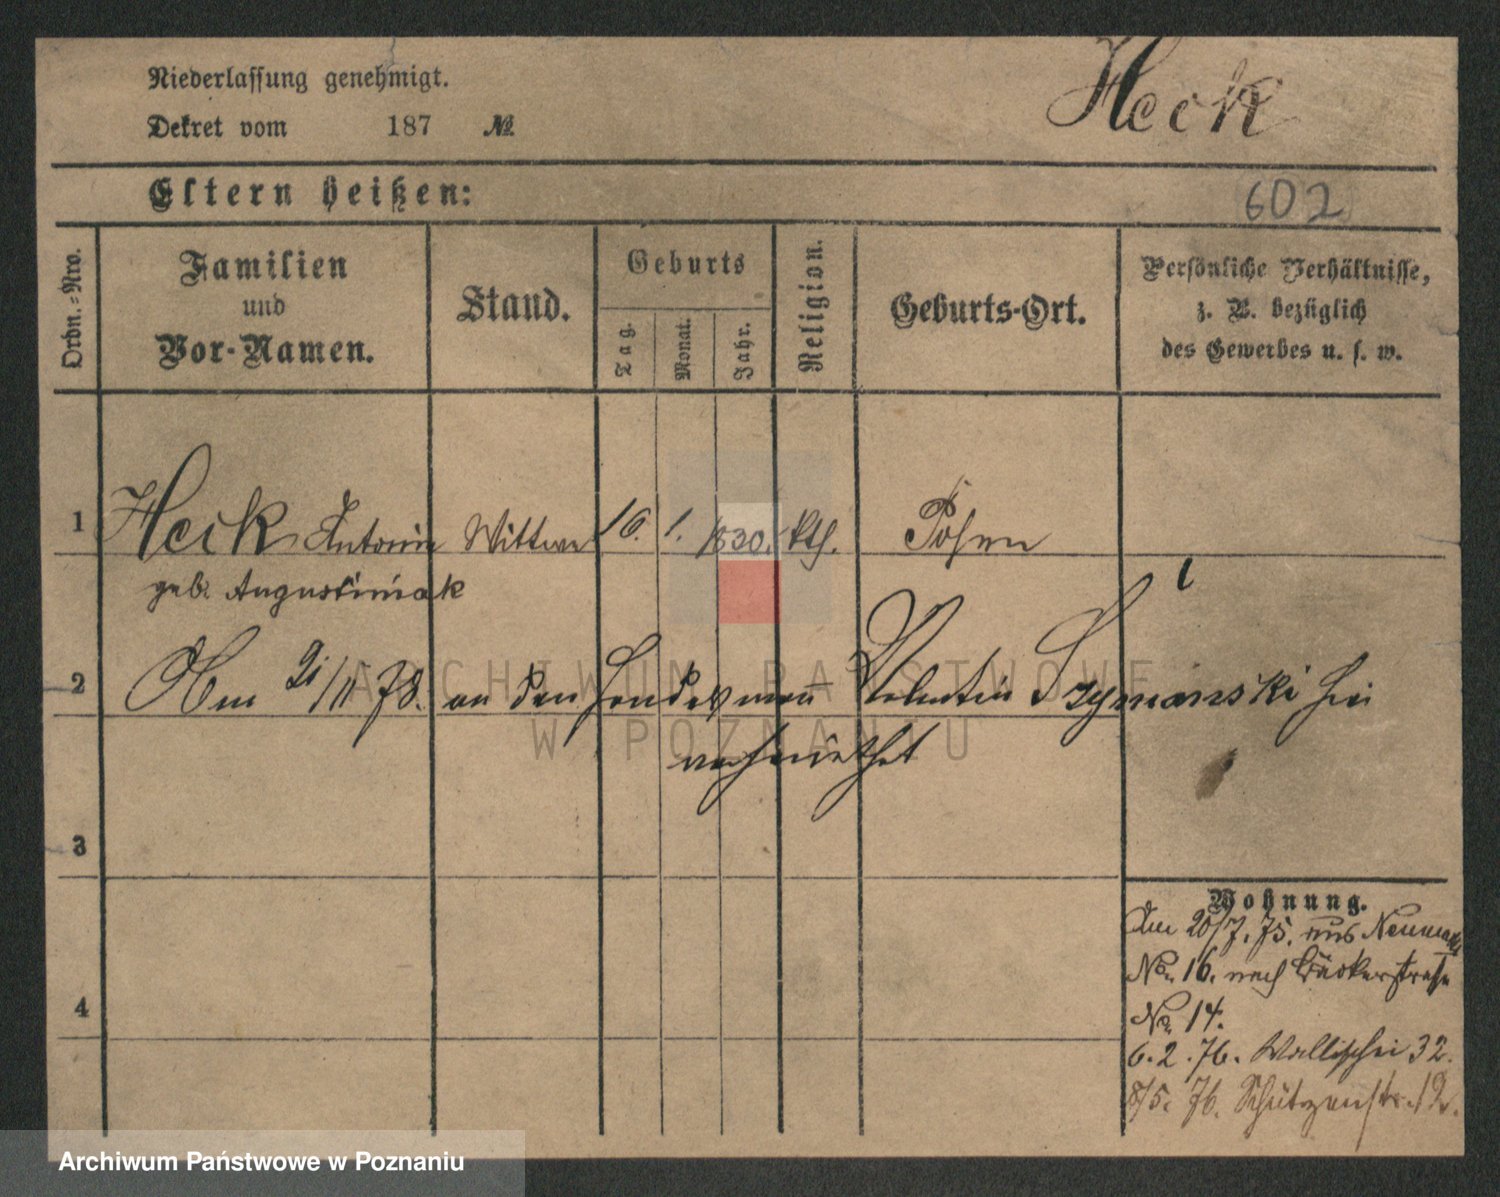 Niederlassung genehmigt.
Dekret vom 187 №
Heck
Eltern heißen:
602
Ordn.-Nro.
Familien
und
Vor-Namen.
Stand.
Geburts
Tag.
Monat.
Jahr.
Religion.
Geburts-Ort.
Persönliche Verhältnisse,
z. B. bezüglich
des Gewerbes u. s. w.
1 Heck Antonie Wittwe 16. 1. 1830. kth. Posen
geb. Augustiniak
2 /11 78. an den Valentin Szymanski hier
verheirathet
3
Wohnung.
Am 20/7. 75. aus Neumarkt
No. 16. nach Bäckerstraße
No 14.
4
6.2.76. Wallischei 32.
8/5. 76. Schützenstr. 12.
ARCHIWUM PAŃSTWOWE
W POZNANIU
Archiwum Państwowe w Poznaniu